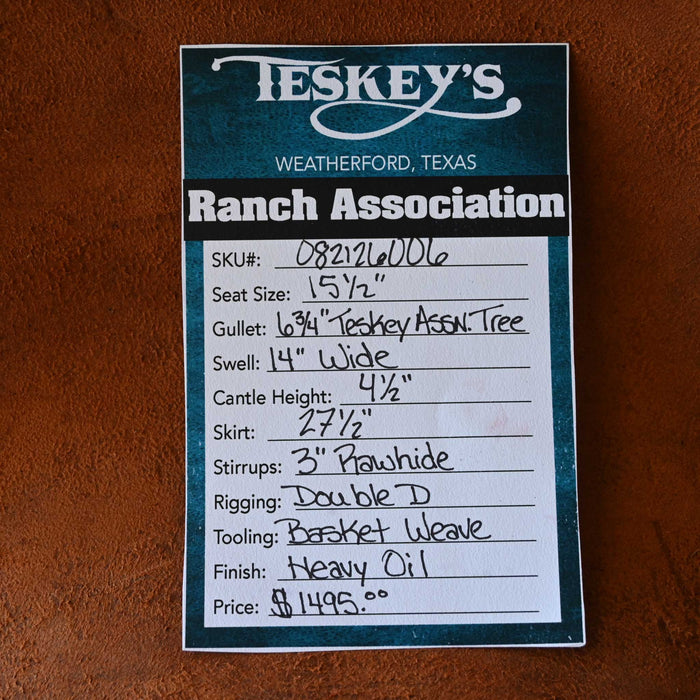 TESKEY'S
WEATHERFORD, TEXAS
Ranch Association
SKU#: 082126006
Seat Size: 15 1/2"
Gullet: 6 3/4" Teskey Assn. Tree
Swell: 14" Wide
Cantle Height: 4 1/2"
Skirt: 27 1/2"
Stirrups: 3" Rawhide
Rigging: Double D
Tooling: Basket Weave
Finish: Heavy Oil
Price: $1495.00